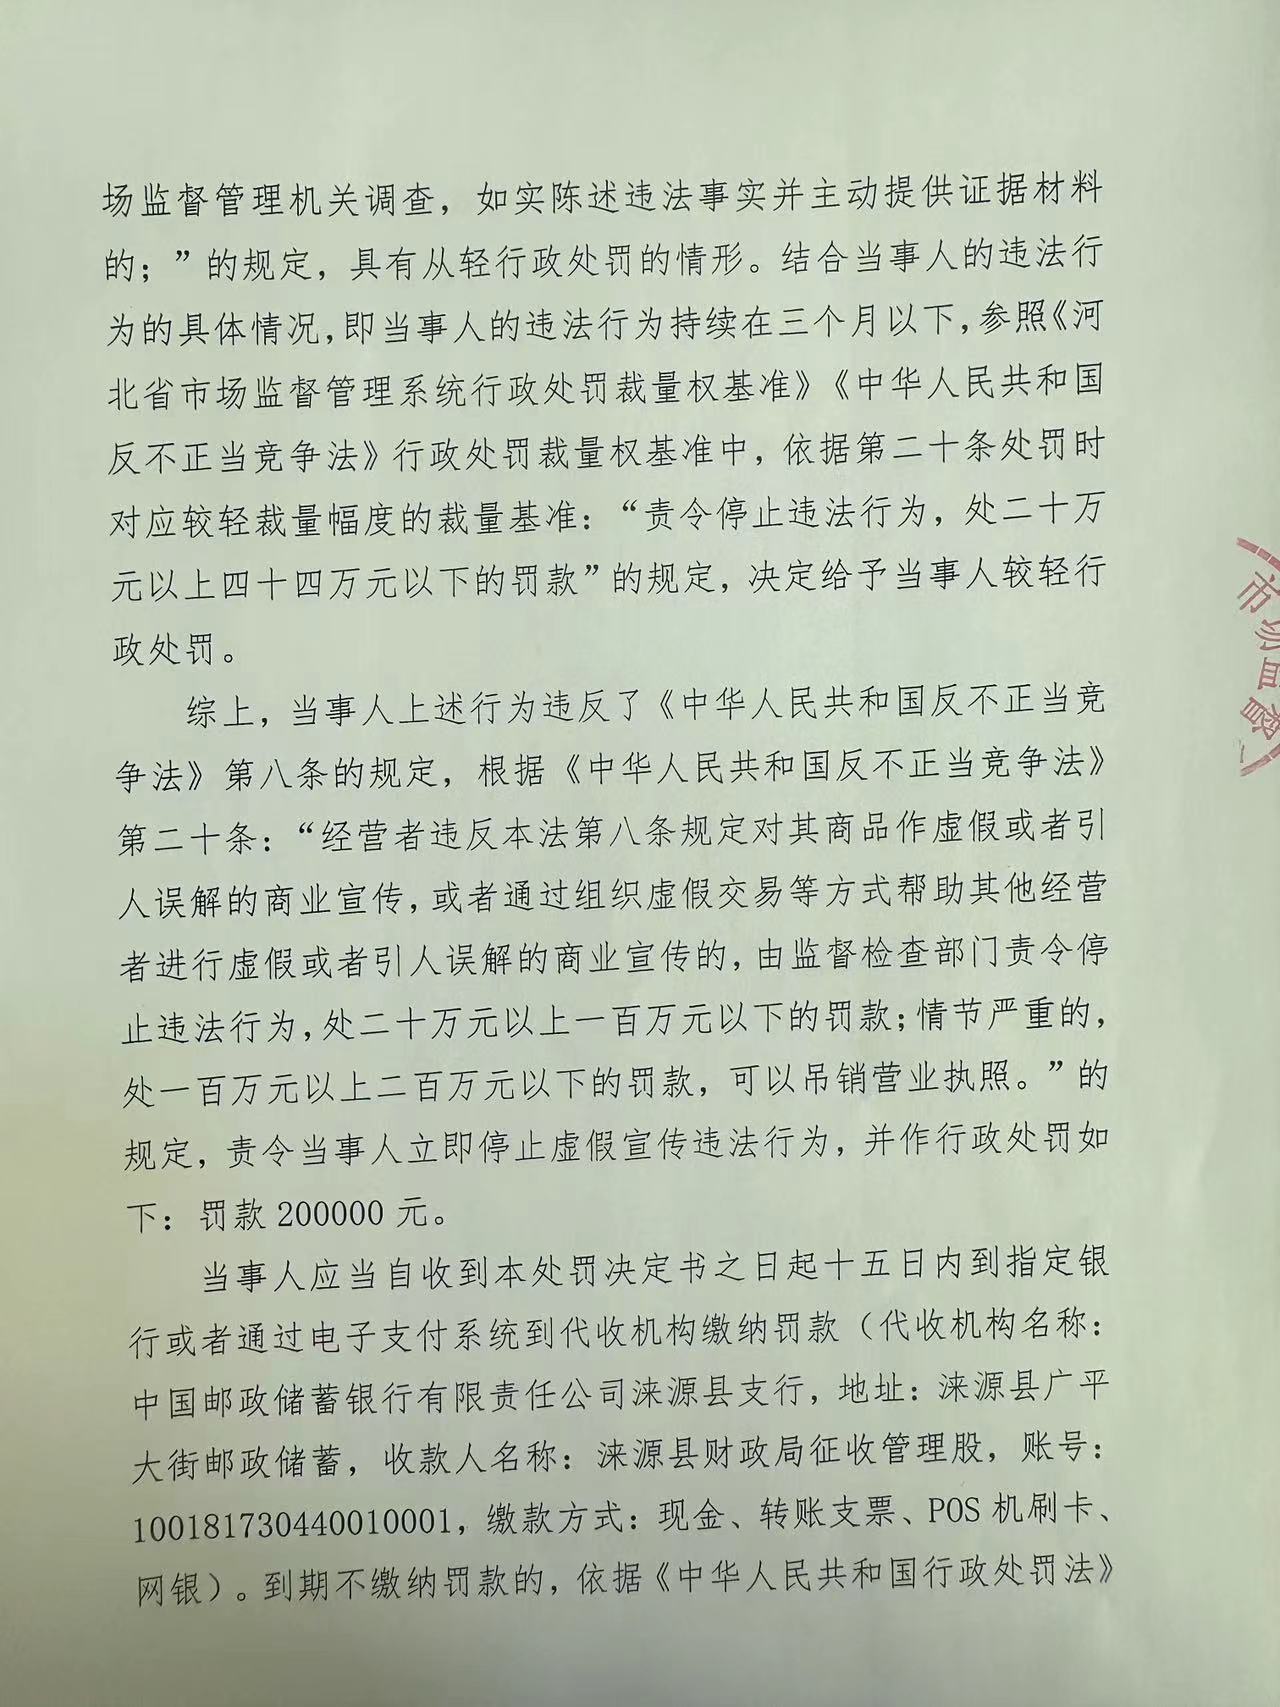 场监督管理机关调查，如实陈述违法事实并主动提供证据材料
的；”的规定，具有从轻行政处罚的情形。结合当事人的违法行
为的具体情况，即当事人的违法行为持续在三个月以下，参照《河
北省市场监督管理系统行政处罚裁量权基准》《中华人民共和国
反不正当竞争法》行政处罚裁量权基准中，依据第二十条处罚时
对应较轻裁量幅度的裁量基准：“责令停止违法行为，处二十万
元以上四十四万元以下的罚款”的规定，决定给予当事人较轻行
政处罚。
综上，当事人上述行为违反了《中华人民共和国反不正当竞
争法》第八条的规定，根据《中华人民共和国反不正当竞争法》
第二十条：“经营者违反本法第八条规定对其商品作虚假或者引
人误解的商业宣传，或者通过组织虚假交易等方式帮助其他经营
者进行虚假或者引人误解的商业宣传的，由监督检查部门责令停
止违法行为，处二十万元以上一百万元以下的罚款；情节严重的，
处一百万元以上二百万元以下的罚款，可以吊销营业执照。”的
规定，责令当事人立即停止虚假宣传违法行为，并作行政处罚如
下：罚款 200000 元。
当事人应当自收到本处罚决定书之日起十五日内到指定银
行或者通过电子支付系统到代收机构缴纳罚款（代收机构名称：
中国邮政储蓄银行有限责任公司涞源县支行，地址：涞源县广平
大街邮政储蓄，收款人名称：涞源县财政局征收管理股，账号：
100181730440010001，缴款方式：现金、转账支票、POS 机刷卡、
网银）。到期不缴纳罚款的，依据《中华人民共和国行政处罚法》
市场监督